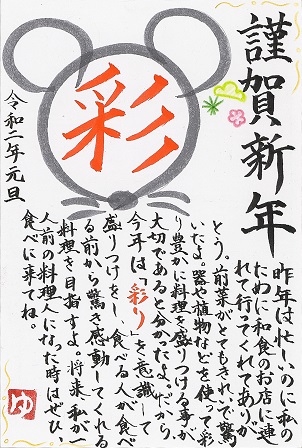 謹賀新年
彩
昨年は忙しいのに私の
ために和食のお店に連
れて行ってくれてありが
とう。前菜がとてもきれいで驚
いたよ。器や植物などを使って彩
り豊かに料理を盛りつける事が
大切であると分かったよ。だから、
今年は「彩り」を意識して
盛りつけをし、食べる人が食べ
る前から驚き感動してくれる
料理を目指すよ。将来私が一
人前の料理人になった時はぜひ
食べに来てね。
令和二年元旦
ゆ